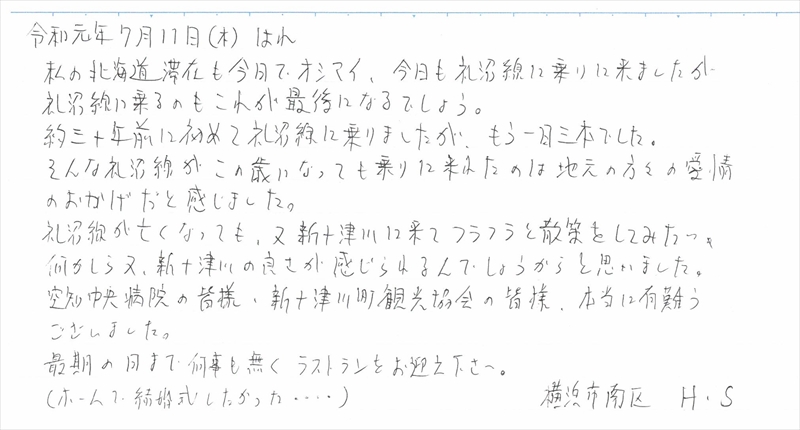 令和元年7月11日(木) はれ
私の北海道滞在も今日でオシマイ、今日も札沼線に乗りに来ましたが
札沼線に乗るのもこれが最後になるでしょう。
約三十年前に初めて札沼線に乗りましたが、もう一日三本でした。
そんな札沼線がこの歳になっても乗りに来れたのは地元の方々の愛情
のおかげだと感じました。
札沼線が亡くなっても、又新十津川に来てフラフラと散策をしてみたい。
何かしら又、新十津川の良さが感じられるんでしょうからと思いました。
空知中央病院の皆様、新十津川町観光協会の皆様、本当に有難う
ございました。
最期の日まで何事も無くラストランをお迎え下さい。
(ホームで結婚式したかった・・・・)
横浜市南区 H・S